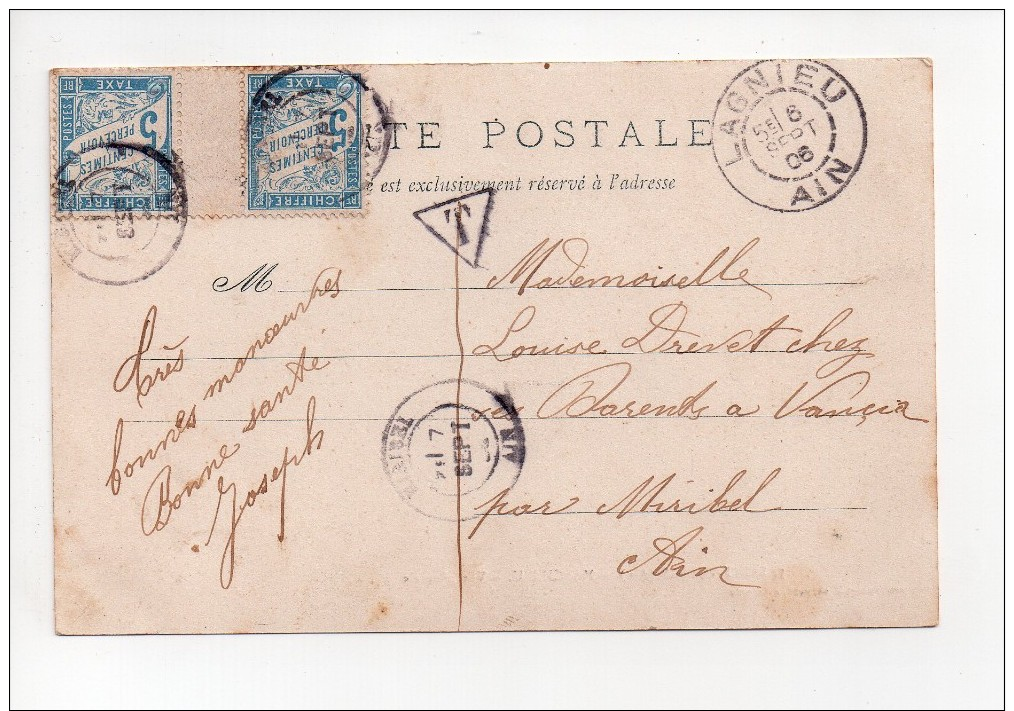 POSTES RF
5
CENTIMES
A PERCEVOIR
TAXE
CHIFFRE
POSTES RF
5
CENTIMES
A PERCEVOIR
TAXE
CHIFFRE RF
TE POSTALE
e est exclusivement réservé à l'adresse
LAGNIEU
6
SEPT
06
AIN
T
M
Mademoiselle
Louise Drevet chez
ses Parents a Vancia
par Miribel
Ain
très
bonnes manœuvres
Bonne santé
Joseph
MIRIBEL
7
SEPT
AIN